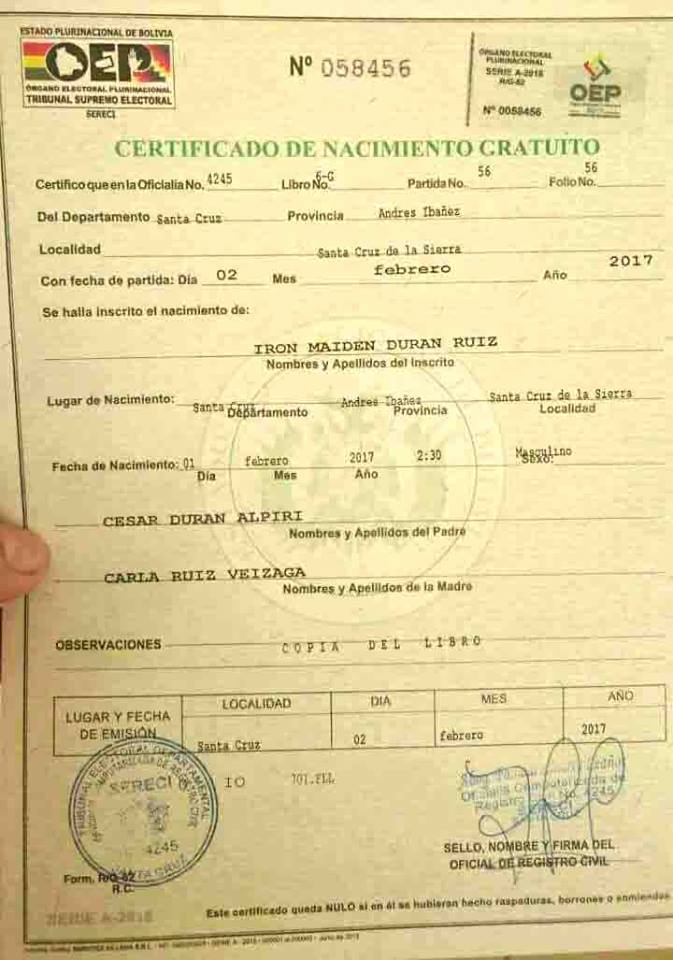 ESTADO PLURINACIONAL DE BOLIVIA
OEP
ÓRGANO ELECTORAL PLURINACIONAL
TRIBUNAL SUPREMO ELECTORAL
SERECI
Nº 058456
ÓRGANO ELECTORAL
PLURINACIONAL
SERIE A-2016
R/G-62
Nº 0058456
OEP
CERTIFICADO DE NACIMIENTO GRATUITO
Certifico que en la Oficialia No. 4245 Libro No. 6-G Partida No. 56 Folio No. 56
Del Departamento Santa Cruz Provincia Andres Ibañez
Localidad Santa Cruz de la Sierra
Con fecha de partida: Día 02 Mes febrero Año 2017
Se halla inscrito el nacimiento de:
IRON MAIDEN DURAN RUIZ
Nombres y Apellidos del Inscrito
Lugar de Nacimiento: Santa Cruz Andres Ibañez Santa Cruz de la Sierra
Departamento Provincia Localidad
Fecha de Nacimiento: 01 febrero 2017 2:30 Masculino
Día Mes Año Sexo:
CESAR DURAN ALPIRI
Nombres y Apellidos del Padre
CARLA RUIZ VEIZAGA
Nombres y Apellidos de la Madre
OBSERVACIONES COPIA DEL LIBRO
LUGAR Y FECHA DE EMISIÓN
LOCALIDAD DIA MES AÑO
Santa Cruz 02 febrero 2017
TRIBUNAL ELECTORAL DEPARTAMENTAL
SERECI
4245
SANTA CRUZ
IO
Oficialia Computarizada de
Registro No. 4245
SERECI
SELLO, NOMBRE Y FIRMA DEL
OFICIAL DE REGISTRO CIVIL
Form. R/G-62
R.C.
SERIE A-2016
Este certificado queda NULO si en él se hubieran hecho raspaduras, borrones o enmiendas